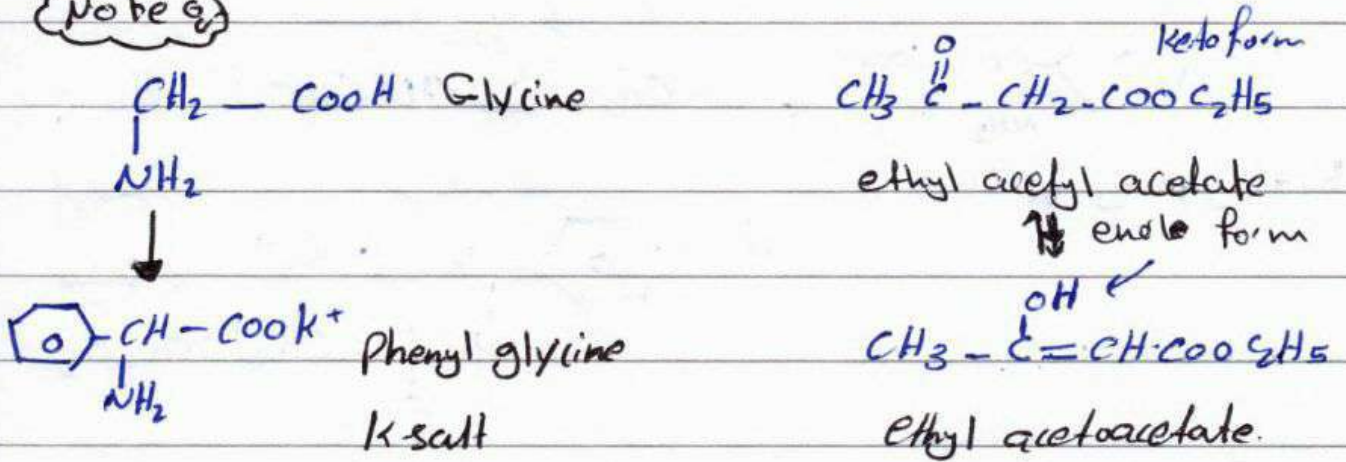 Note
CH2 — COOH Glycine
NH2
CH — COOK+ Phenyl glycine
NH2
K salt
O
Keto form
CH3 C - CH2 - COO C2H5
ethyl acetyl acetate
enole form
OH
CH3 - C = CH · COO C2H5
ethyl acetoacetate.